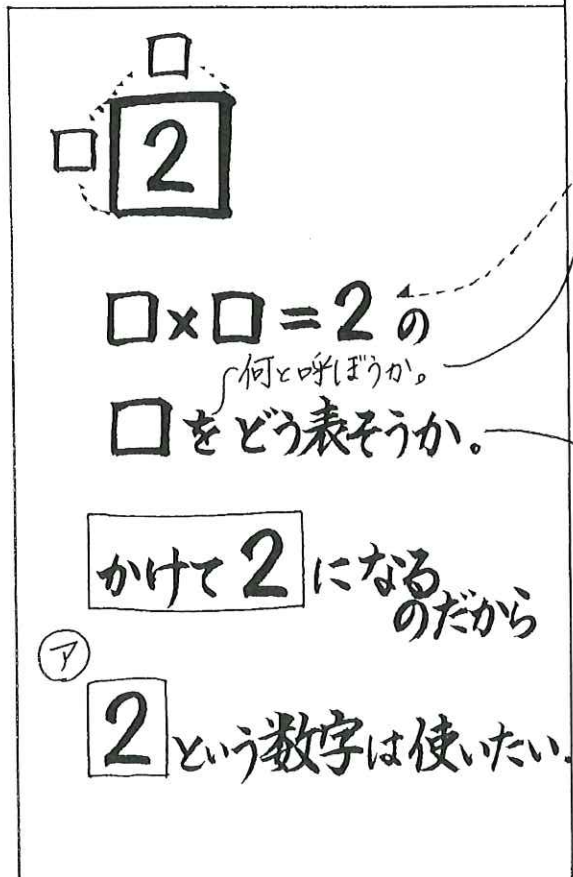 □
□ 2
□×□=2の
何と呼ぼうか。
□をどう表そうか。
かけて2になる
のだから
ア
2という数字は使いたい。